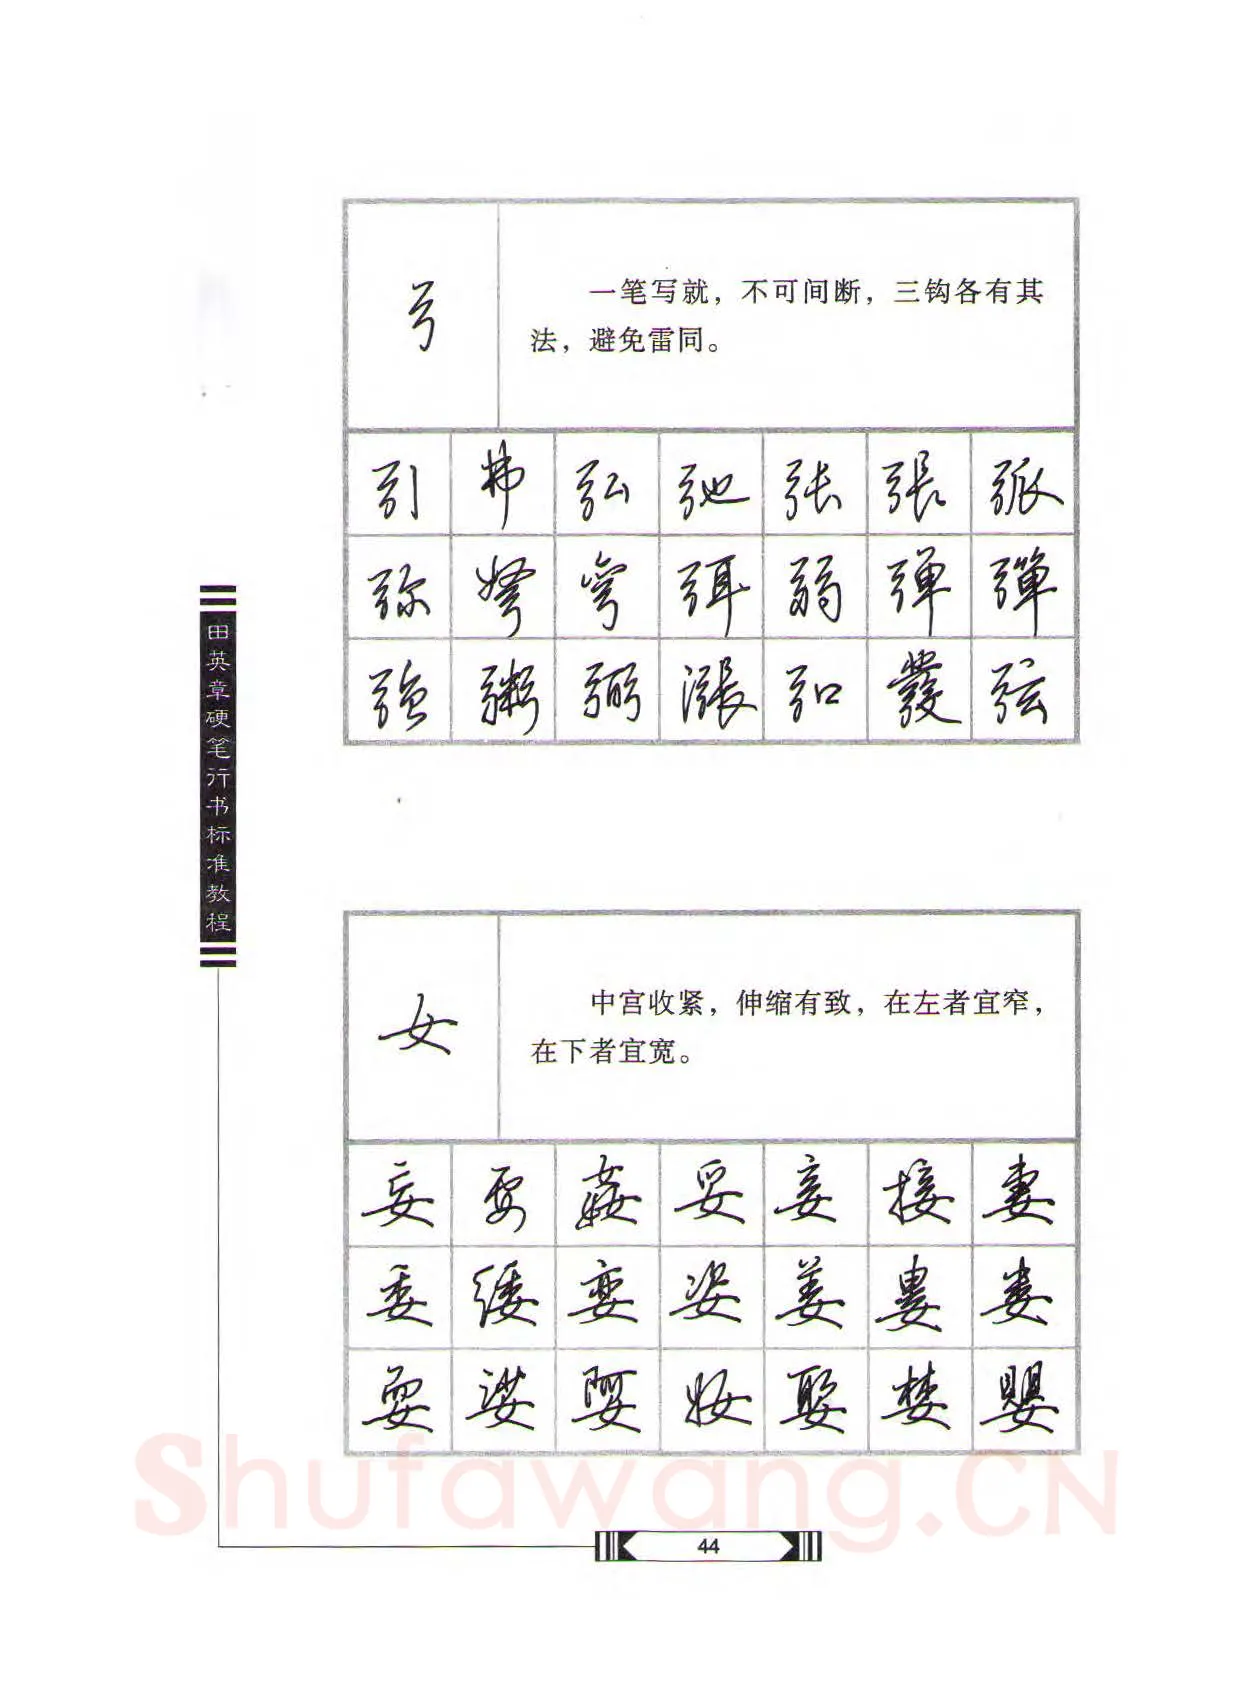 弓
一笔写就，不可间断，三钩各有其
法，避免雷同。
引 弗 弘 弛 张 張 弧
弥 弩 弯 弭 弱 弹 彈
强 粥 弼 漲 弘 發 弦
田英章硬笔行书标准教程
女
中宫收紧，伸缩有致，在左者宜窄，
在下者宜宽。
妄 要 姦 妥 妾 接 妻
委 矮 娈 姿 姜 婁 娄
耍 娑 婴 妝 娶 楼 嬰
44
Shufawang.CN